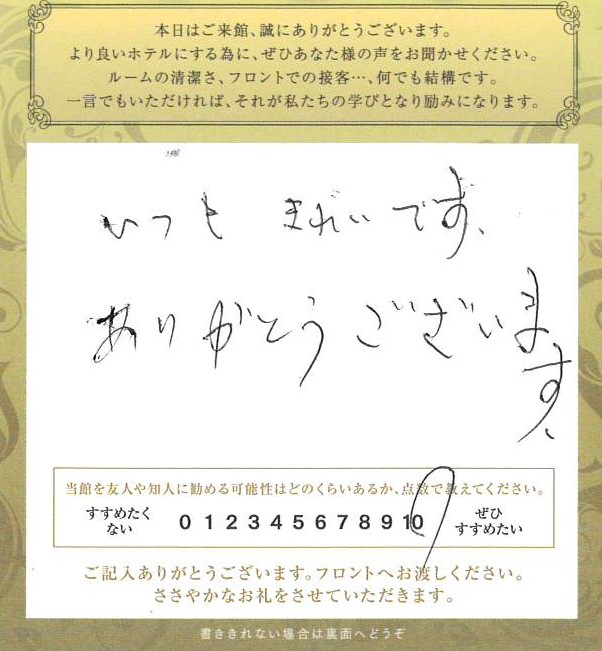 本日はご来館、誠にありがとうございます。
より良いホテルにする為に、ぜひあなた様の声をお聞かせください。
ルームの清潔さ、フロントでの接客…、何でも結構です。
一言でもいただければ、それが私たちの学びとなり励みになります。
いつも きれいです、
ありがとうございます、
当館を友人や知人に勧める可能性はどのくらいあるか、点数で教えてください。
すすめたくない 0 1 2 3 4 5 6 7 8 9 10 ぜひすすめたい
ご記入ありがとうございます。フロントへお渡しください。
ささやかなお礼をさせていただきます。
書ききれない場合は裏面へどうぞ